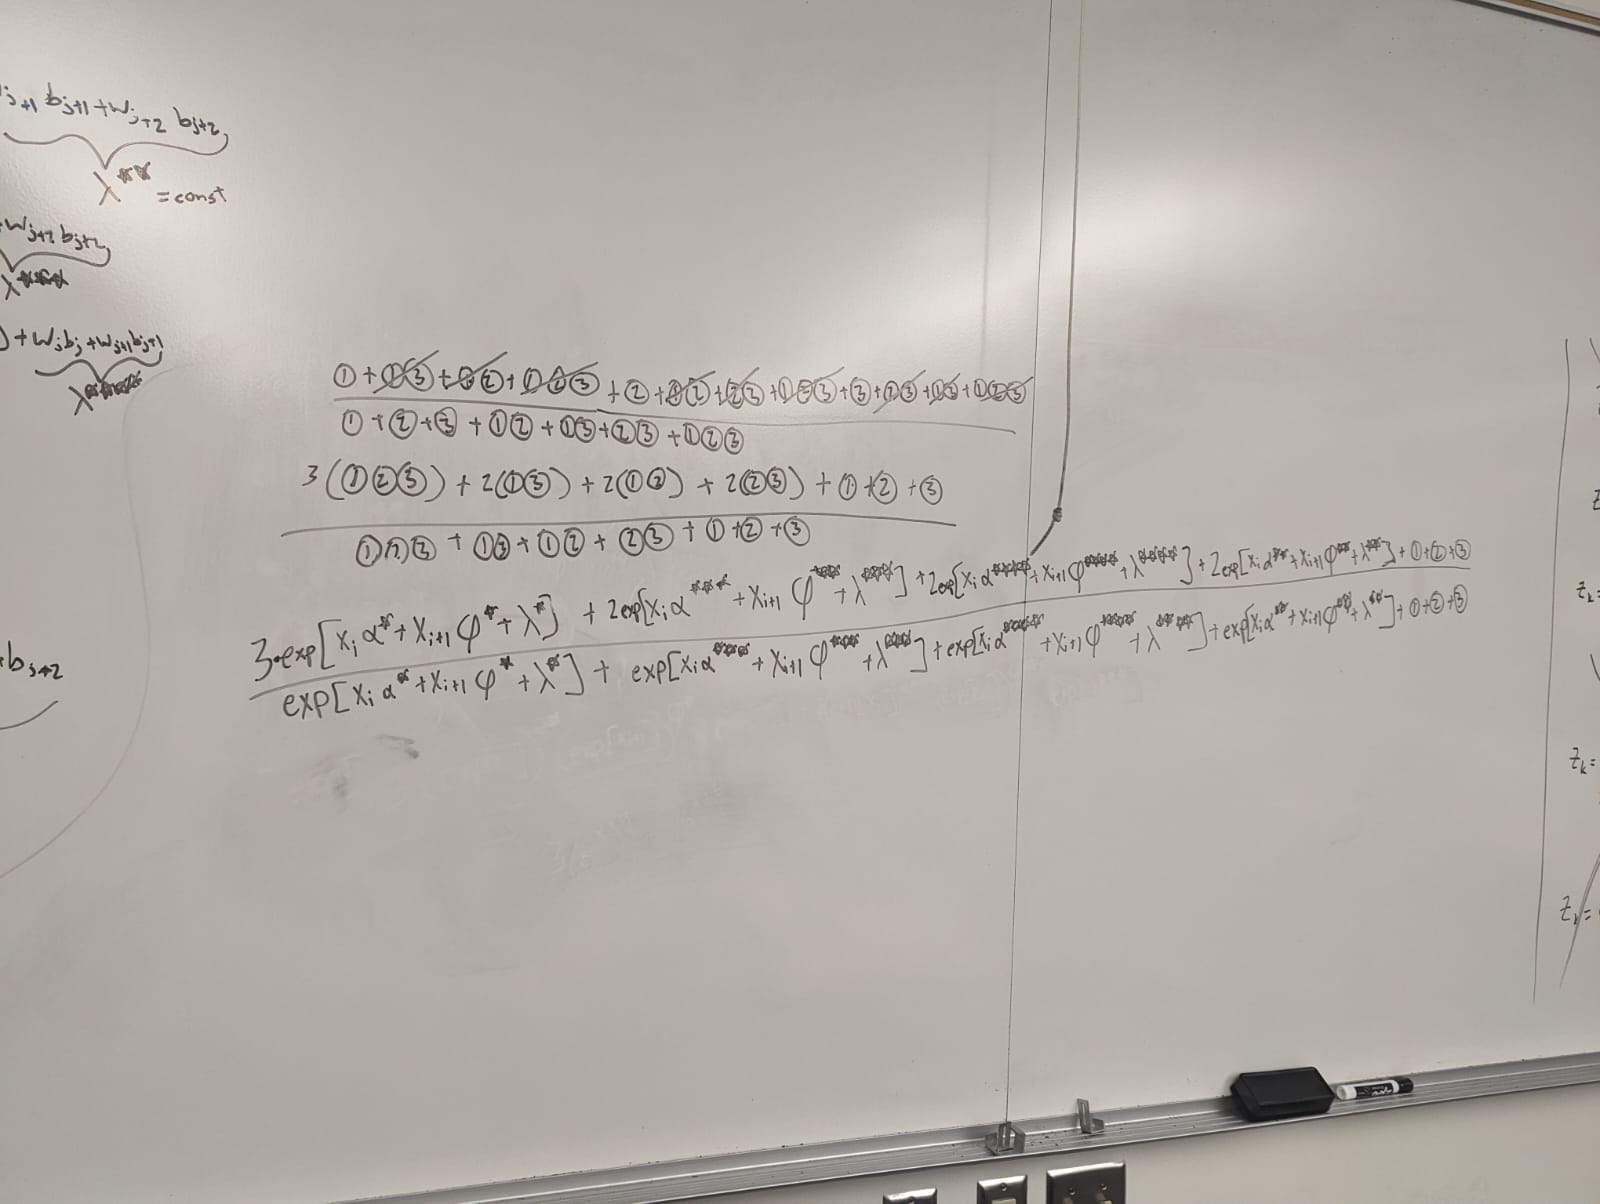 j+1 bj+1 + wj+2 bj+2
λ** = const
+ wj+2 bj+2
λ****
) + wjbj + wj+1bj+1
① + ①③ + ①② + ①②③ + ② + ①② + ②③ + ①②③ + ③ + ②③ + ①③ + ①②③
① + ② + ③ + ①② + ①③ + ②③ + ①②③
3(①②③) + 2(①③) + 2(①②) + 2(②③) + ① + ② + ③
①②③ + ①③ + ①② + ②③ + ① + ② + ③
3·exp[xi α* + xi+1 φ* + λ*] + 2exp[xi α**** + xi+1 φ**** + λ****] + 2exp[xi α***** + xi+1 φ***** + λ*****] + 2exp[xi α** + xi+1 φ** + λ**] + ① + ② + ③
exp[xi α* + xi+1 φ* + λ*] + exp[xi α**** + xi+1 φ**** + λ****] + exp[xi α***** + xi+1 φ***** + λ*****] + exp[xi α** + xi+1 φ** + λ**] + ① + ② + ③
bj+2
zk=
zk=